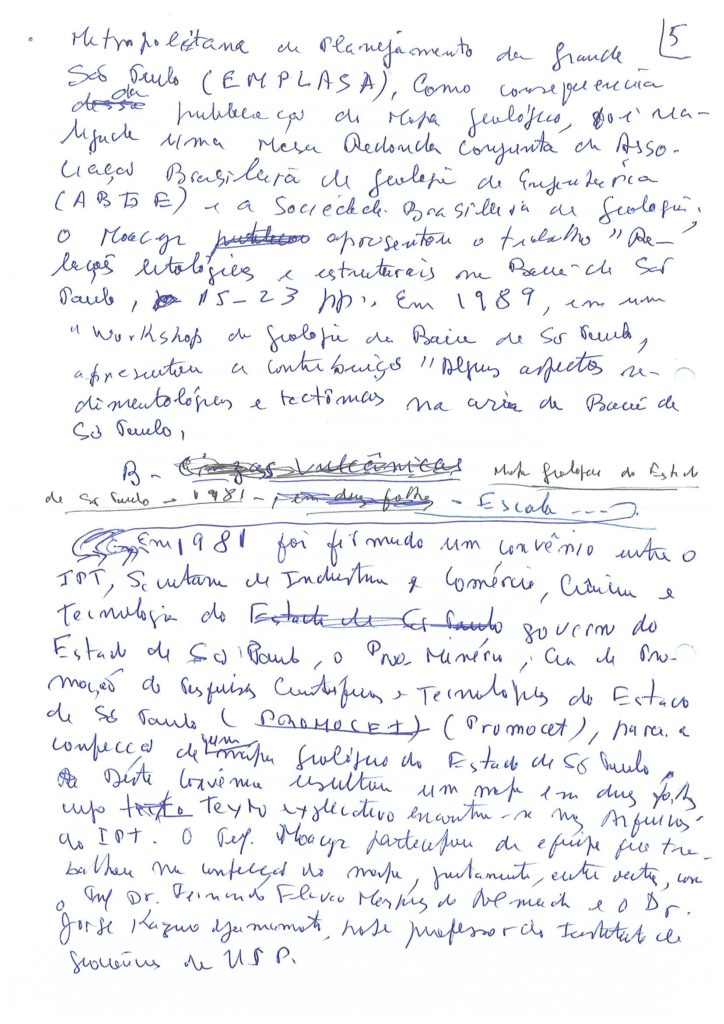 5
Metropolitana de Planejamento da Grande
São Paulo (EMPLASA), como consequência
desse da publicação do Mapa Geológico, foi rea-
lizada uma Mesa Redonda conjunta da Asso-
ciação Brasileira de Geologia de Engenharia
(ABGE) e a Sociedade Brasileira de Geologia,
o Moacyr apresentou o trabalho "Re-
lações litológicas e estruturais na Bacia de São
Paulo, 15-23 pp., Em 1989, em um
"Workshop da Geologia da Bacia de São Paulo,
apresentou a contribuição "Alguns aspectos se-
dimentológicos e tectônicos na area da Bacia de
São Paulo,
B - Cinzas Vulcânicas Mapa Geológico do Estado
de São Paulo - 1981 - , em duas folhas - Escala ----).
Em 1981 foi firmado um convênio entre o
IPT, Secretaria de Industria e Comércio, Ciência e
Tecnologia do Estado de São Paulo governo do
Estado de São Paulo, o Pro-Minério, Cia de Pro-
moção de Pesquisas Científicas e Tecnológicas do Estado
de São Paulo (PROMOCET) (Promocet), para a
confecção de um mapa geológico do Estado de São Paulo.
Deste Convênio resultou um mapa em duas folhas
cujo texto Texto explicativo encontra-se nos Arquivos
do IPT. O Prof. Moacyr participou da equipe que tra-
balhou na confecção do mapa, juntamente, entre outros, com
o Prof Dr. Fernando Flávio Marques de Almeida e o Dr.
Jorge Kazuo Yamamoto, hoje professor do Instituto de
Geociências da USP.